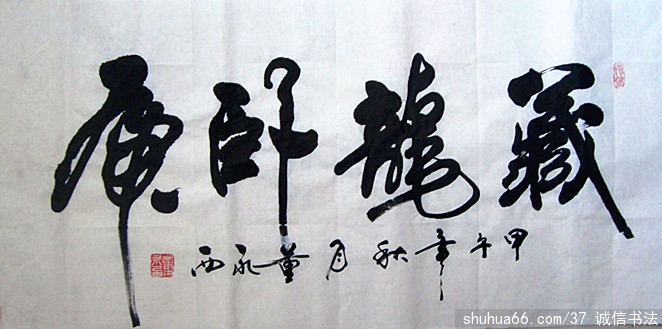 藏龍卧虎
甲午年秋月董永西
shuhua66.com/37 诚信书法